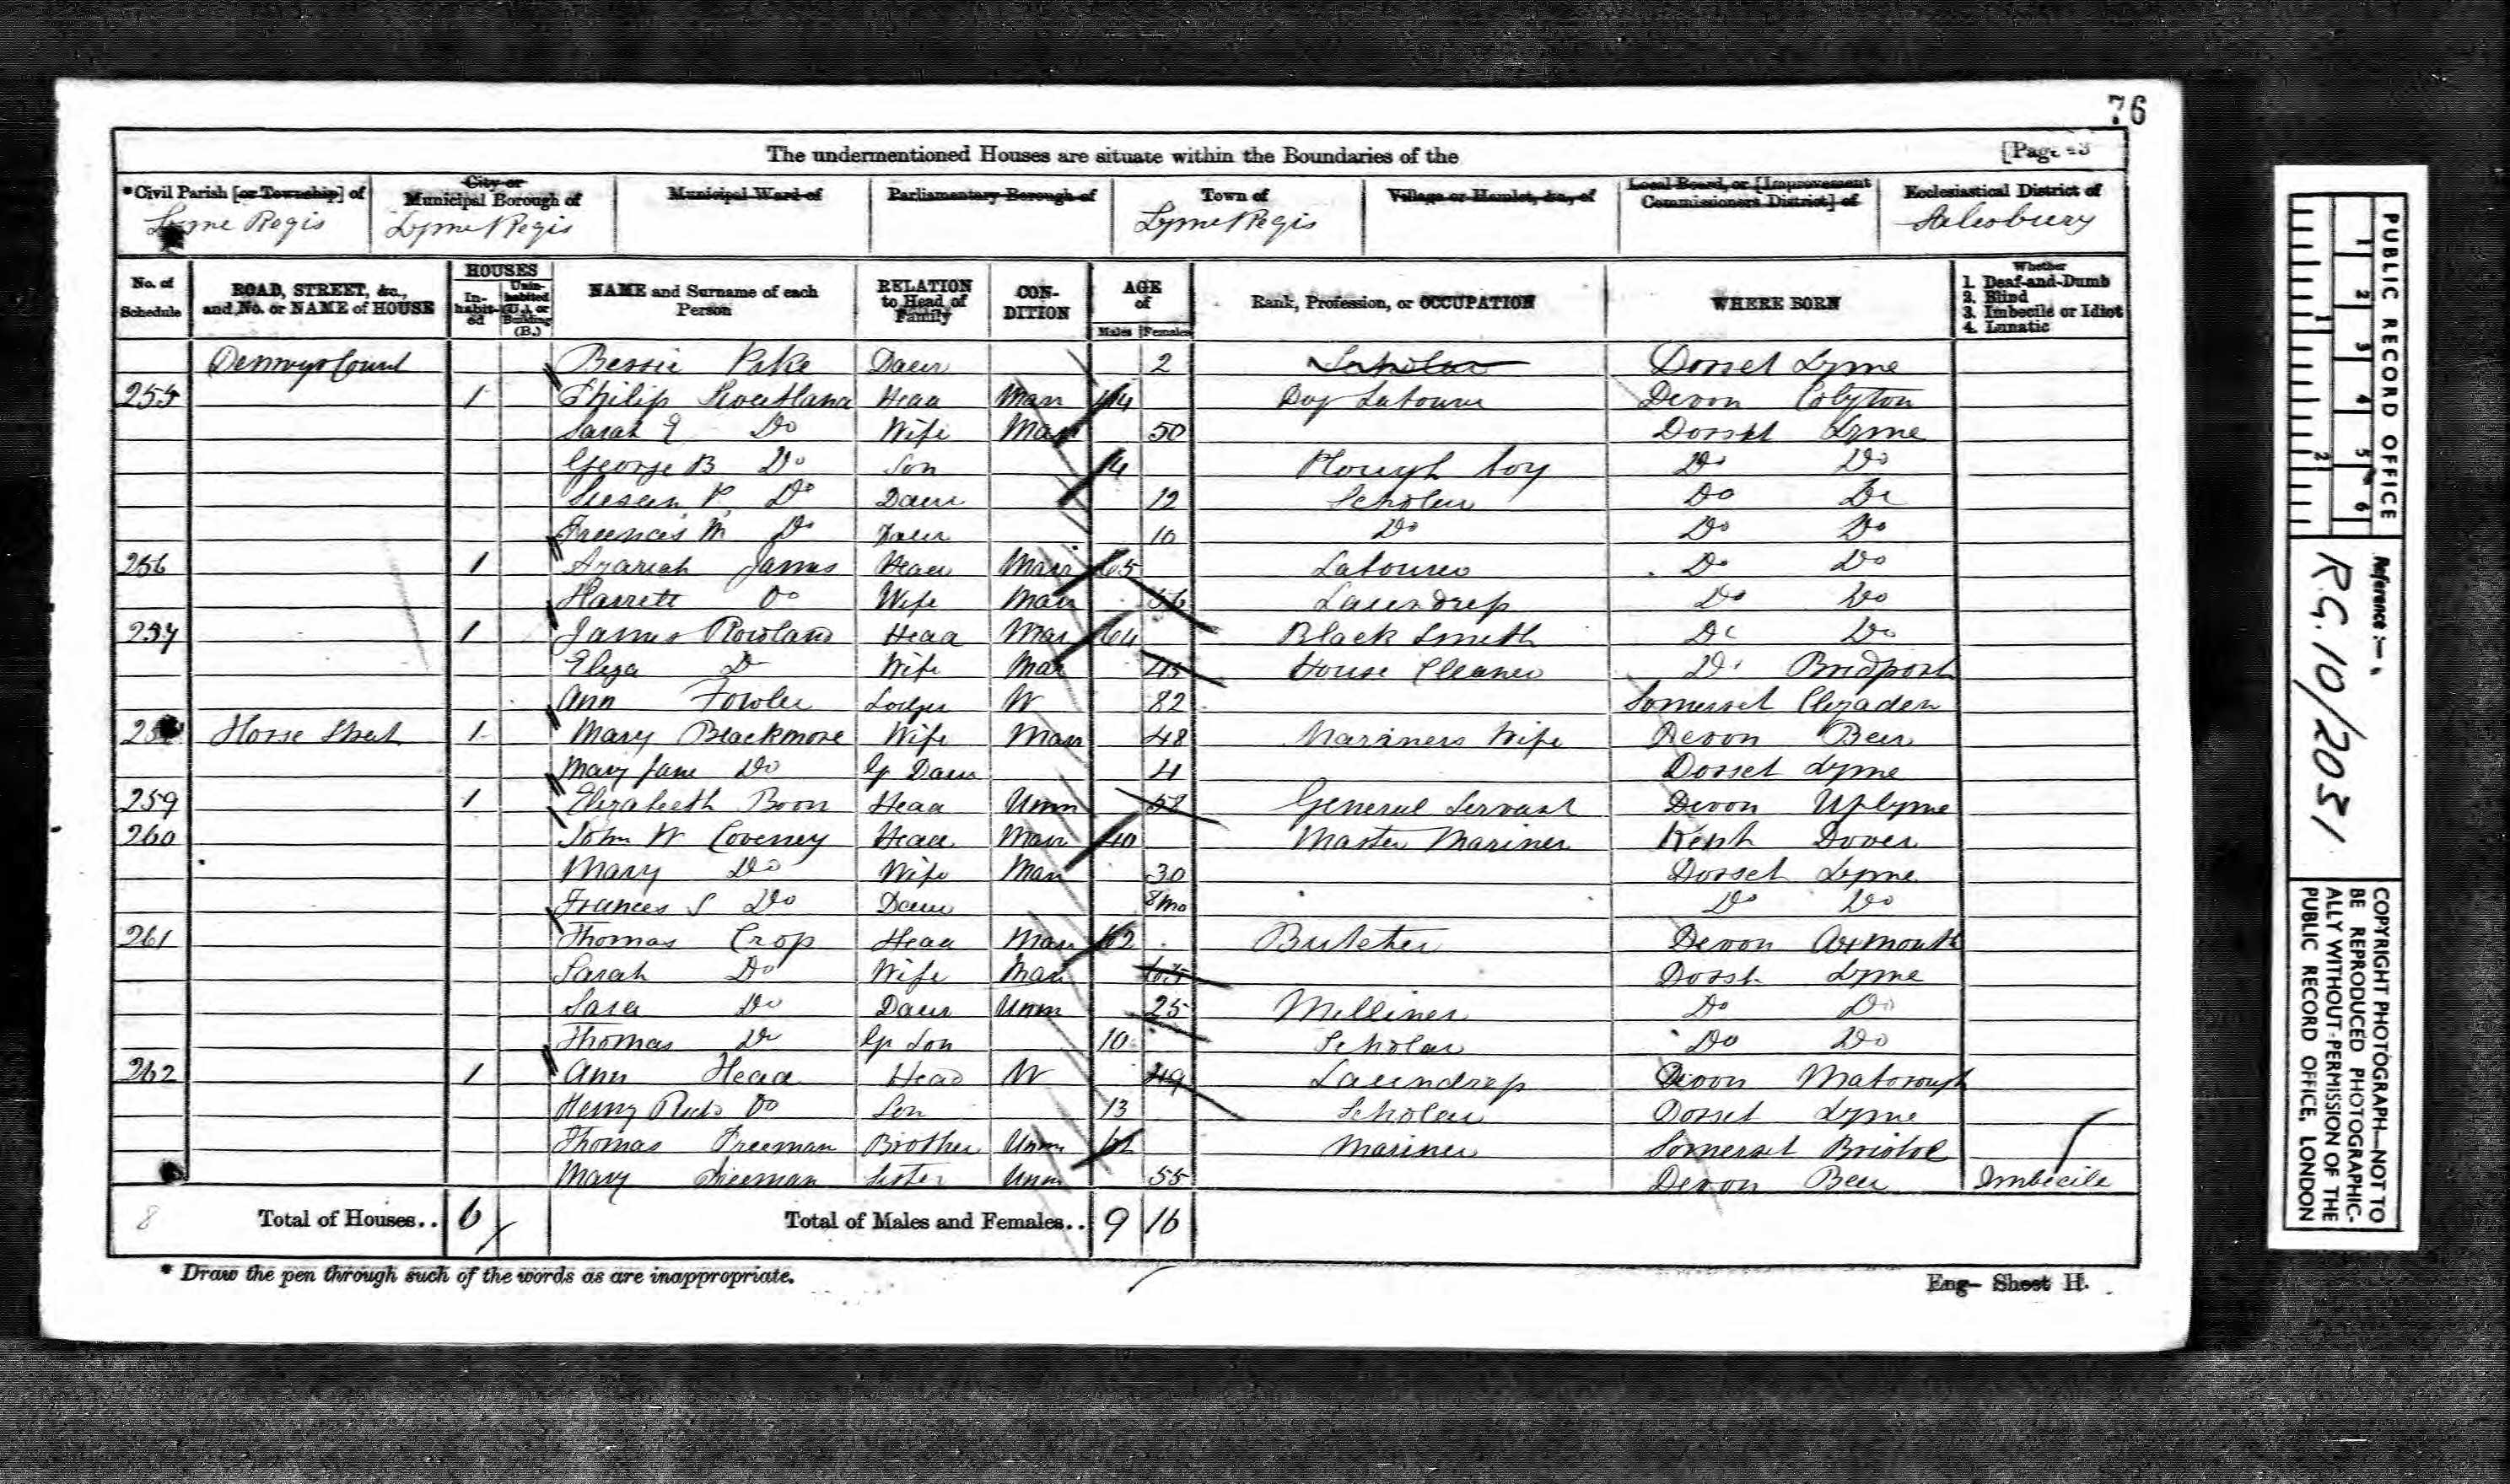 76
The undermentioned Houses are situate within the Boundaries of the
[Page
*Civil Parish [or Township] of
City or Municipal Borough of
Municipal Ward of
Parliamentary Borough of
Town of
Village or Hamlet, &c., of
Local Board, or [Improvement Commissioners District] of
Ecclesiastical District of
Lyme Regis Lyme Regis Lyme Regis
No. of Schedule
ROAD, STREET, &c., and No. or NAME of HOUSE
HOUSES
In-habit-ed
Unin-habited (U.), or Building (B.)
NAME and Surname of each Person
RELATION to Head of Family
CON-DITION
AGE of
Males Females
Rank, Profession, or OCCUPATION
WHERE BORN
Whether
1. Deaf-and-Dumb
2. Blind
3. Imbecile or Idiot
4. Lunatic
Bessie Daur 2 Scholar Dorset Lyme
255 1 Philip Head Mar 44 Labourer Devon Colyton
Sarah E Do Wife Mar 50 Dorset Lyme
George B Do Son 14 Plough boy Do Do
Do Daur 12 Scholar Do Do
Do Daur 10 Do Do Do
256 1 James Head Mar 65 Labourer Do Do
Do Wife Mar 56 Laundress Do Do
257 1 James Rowland Head Mar 64 Black Smith Do Do
Eliza Do Wife Mar 45 House Cleaner Do Bridport
Ann Fowler Lodger W 82 Somerset
Horse Street 1 Mary Blackmore Wife Mar 48 Mariners Wife Devon Beer
Mary Jane Do Gr Daur 4 Dorset Lyme
259 1 Elizabeth Boon Head Unm 52 General Servant Devon Uplyme
260 John W Coveney Head Mar 40 Master Mariner Kent Dover
Mary Do Wife Mar 30 Dorset Lyme
Frances S Do Daur 8mo Do Do
261 Thomas Crop Head Mar 62 Butcher Devon Axmouth
Sarah Do Wife Mar Dorset Lyme
Sara Do Daur Unm 25 Milliner Do Do
Thomas Do Gr Son 10 Scholar Do Do
262 1 Ann Head Head W 49 Laundress Devon
Henry Do Son 13 Scholar Dorset Lyme
Thomas Freeman Brother Unm Mariner Somerset Bristol
Mary Freeman Sister Unm 55 Devon Beer Imbecile
8 Total of Houses.. 6 Total of Males and Females.. 9 16
* Draw the pen through such of the words as are inappropriate.
Eng- Sheet H.
PUBLIC RECORD OFFICE
1 2 3 4 5 6
1 2
Reference :-
R.G. 10/2031
COPYRIGHT PHOTOGRAPH—NOT TO
BE REPRODUCED PHOTOGRAPHIC-
ALLY WITHOUT PERMISSION OF THE
PUBLIC RECORD OFFICE, LONDON